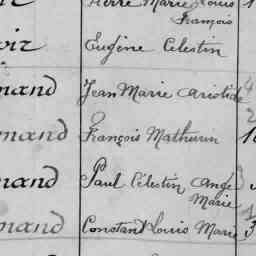 Pierre Marie Louis
François
Eugène Célestin
mand Jean Marie Aristide
mand François Mathurin
mand Paul Célestin Ange
Marie
mand Constant Louis Marie 3